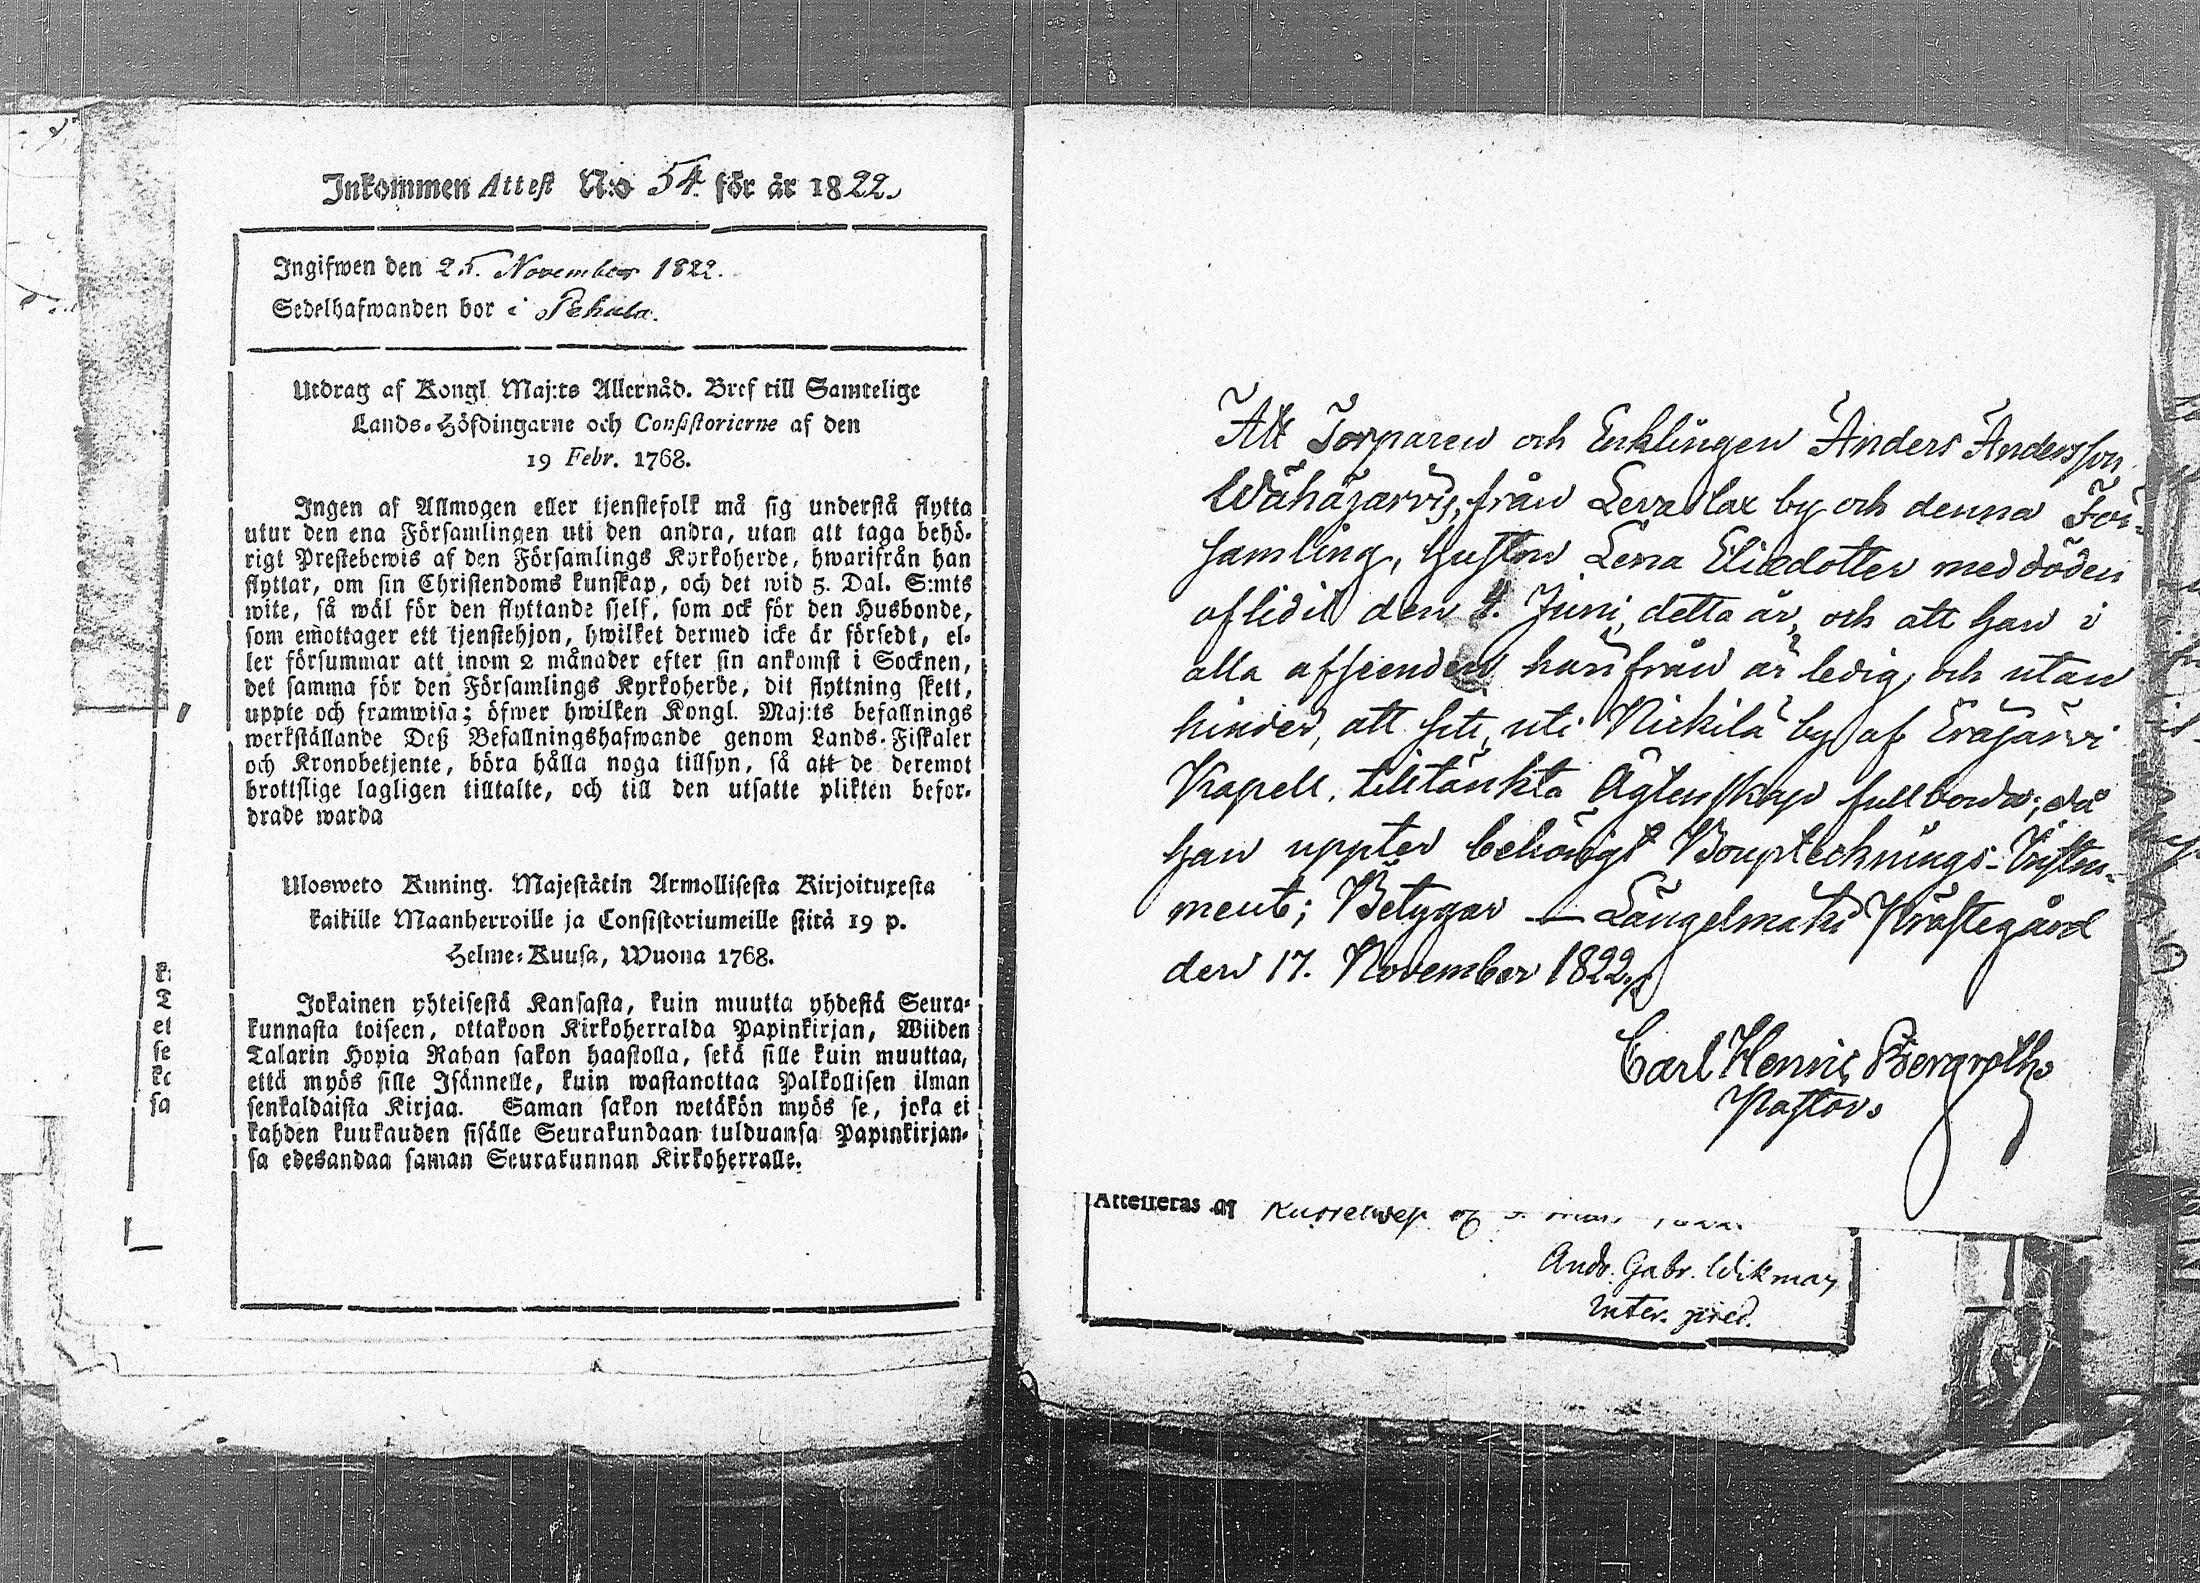 Inkommen Attest N:o 54. för år 1822.
Ingifwen den 25. November 1822.
Sedelhafwanden bor i Pehula.
Utdrag af Kongl Maj:ts Allernåd. Bref till Samtelige
Lands-Höfdingarne och Consistorierne af den
19 Febr. 1768.
Ingen af Allmogen eller tjenstefolk må sig understå flytta
utur den ena Församlingen uti den andra, utan att taga behö-
rigt Prestebewis af den Församlings Kyrkoherde, hwarifrån han
flyttar, om sin Christendoms kunskap, och det wid 5. Dal. S:mts
wite, så wäl för den flyttande sjelf, som ock för den Husbonde,
som em̃ottager ett tjenstehjon, hwilket dermed icke är försedt, el-
ler försummar att inom 2 månader efter sin ankomst i Socknen,
det samma för den Församlings Kyrkoherde, dit flyttning skett,
uppte och framwisa; öfwer hwilken Kongl. Maj:ts befallnings
werkställande Deß Befallningshafwande genom Lands-Fiskaler
och Kronobetjente, böra hålla noga tillsyn, så att de deremot
brottslige lagligen tilltalte, och till den utsatte plikten befor-
drade warda
Ulosweto Kuning. Majestätin Armollisesta Kirjoituxesta
kaikille Maanherroille ja Consistoriumeille siitä 19 p.
Helme-Kuusa, Wuona 1768.
Jokainen yhteisestä Kansasta, kuin muutta yhdestä Seura-
kunnasta toiseen, ottakoon Kirkoherralda Papinkirjan, Wiiden
Talarin Hopia Rahan sakon haastolla, sekä sille kuin muuttaa,
että myös sille Isännelle, kuin wastanottaa Palkollisen ilman
senkaldaista Kirjaa. Saman sakon wetäkön myös se, joka ei
kahden kuukauden sisälle Seurakundaan tulduansa Papinkirjan-
sa edesandaa saman Seurakunnan Kirkoherralle.
Att Torparen och Enklingen Anders Andersson
Wähäjärvi, från Leväslax by och denna För-
samling, hustru Lena Eliædotter med döden
aflidit den 4. Juni detta år, och att han i
alla afseenden härifrån är ledig, och utan
hinder, att sitt, uti Nickilä by af Eräjärvi
Kapell, tilltänkta Ägtenskap fullborda; då
han uppter behörigt Bouptecknings-Instru-
ment; Betygar — Längelmäki Prästegård
den 17. November 1822.
Carl Henric Bergroth
Pastor.
Attesteras af
Andr. Gabr. Wikman